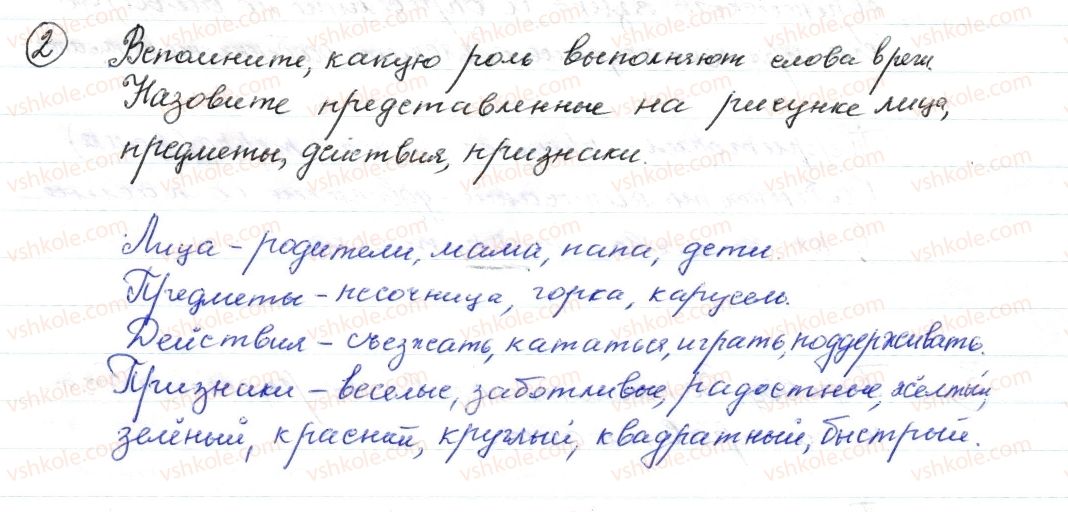 2 Вспомните, какую роль выполняют слова в речи.
Назовите представленные на рисунке лица,
предметы, действия, признаки.
Лица - родители, мама, папа, дети.
Предметы - песочница, горка, карусель.
Действия - съезжать, кататься, играть, поддерживать.
Признаки - веселые, заботливые, радостные, жёлтый,
зелёный, красный, круглый, квадратный, быстрый.